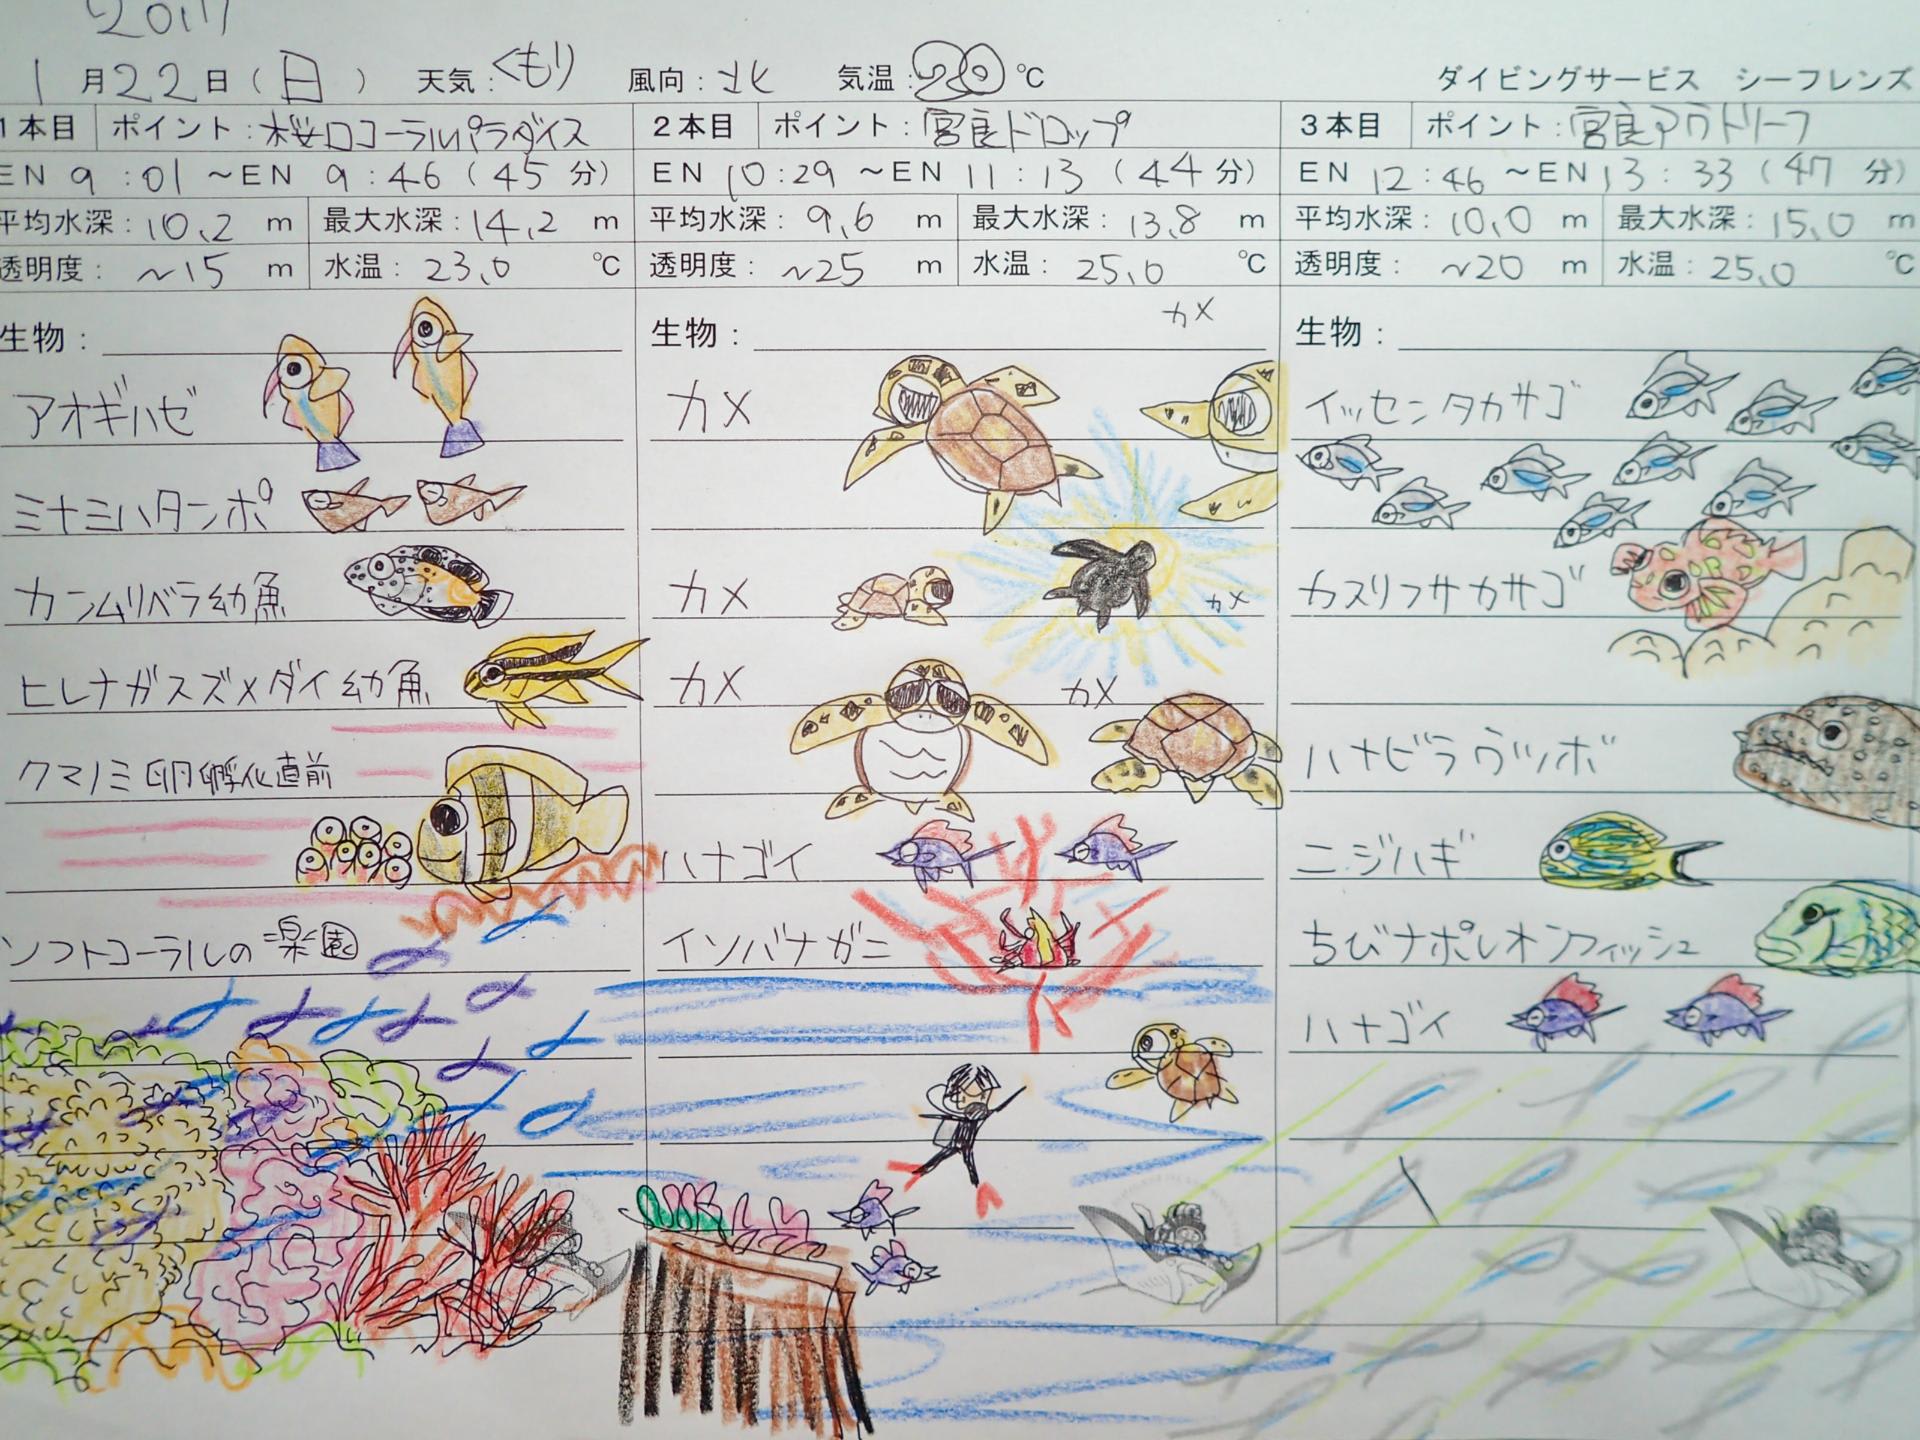 2017
1月22日(日) 天気:くもり 風向:北 気温:20℃ ダイビングサービス シーフレンズ
1本目 ポイント:桜口コーラルパラダイス 2本目 ポイント:宮良ドロップ 3本目 ポイント:宮良アウトリーフ
EN 9:01 ~EN 9:46 (45分) EN 10:29 ~EN 11:13 (44分) EN 12:46 ~EN 13:33 (47分)
平均水深:10.2 m 最大水深:14.2 m 平均水深:9.6 m 最大水深:13.8 m 平均水深:10.0 m 最大水深:15.0 m
透明度: ~15 m 水温:23.0 ℃ 透明度: ~25 m 水温:25.0 ℃ 透明度: ~20 m 水温:25.0 ℃
生物:
アオギハゼ
ミナミハタンポ
カンムリベラ幼魚
ヒレナガスズメダイ幼魚
クマノミ卵孵化直前
ソフトコーラルの楽園
生物:
カメ
カメ
カメ
カメ
カメ カメ
ハナゴイ
イソバナガニ
生物:
イッセンタカサゴ
カスリフサカサゴ
ハナビラウツボ
ニジハギ
ちびナポレオンフィッシュ
ハナゴイ